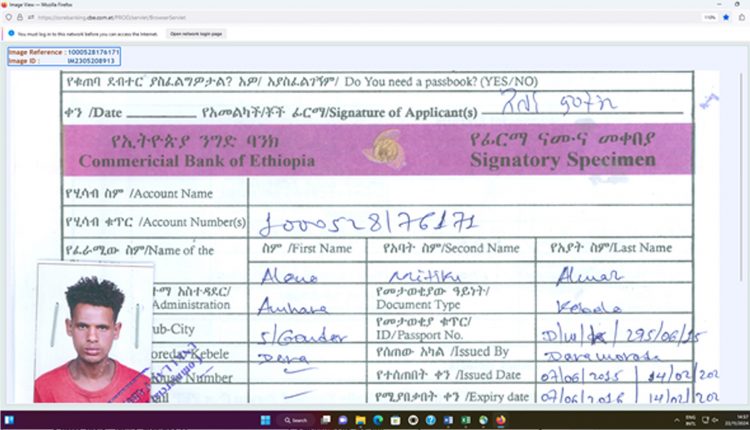 Image View — Mozilla Firefox
https://corebanking.cbe.com.et/PROD/servlet/BrowserServlet
110%
You must log in to this network before you can access the Internet.
Open network login page
Image Reference : 1000528176171
Image ID : IM2305208913
የቁጠባ ደብተር ያስፈልግዎታል? አዎ/ አያስፈልገኝም/ Do You need a passbook? (YES/NO)
ቀን /Date የአመልካች/ቾች ፊርማ/Signature of Applicant(s)
የኢትዮጵያ ንግድ ባንክ
Commericial Bank of Ethiopia
የፊርማ ናሙና መቀበያ
Signatory Specimen
የሂሳብ ስም /Account Name
የሂሳብ ቁጥር /Account Number(s) 1000528176171
የፈራሚው ስም/Name of the
ስም /First Name
የአባት ስም/Second Name
የአያት ስም/Last Name
Mitiku
ከተማ አስተዳደር/
Administration
Amhara
የመታወቂያው ዓይነት/
Document Type
Kebele
Sub-City
S/Gonder
የመታወቂያ ቁጥር/
ID/Passport No.
295/06/15
Woreda/Kebele
Dera
የሰጠው አካል /Issued By
House Number
የተሰጠበት ቀን /Issued Date
07/06/2015 | 14/02/202
የሚያበቃበት ቀን /Expiry date
07/06/2016 | 14/02/202
Search
ENG
INTL
14:57
22/11/2024